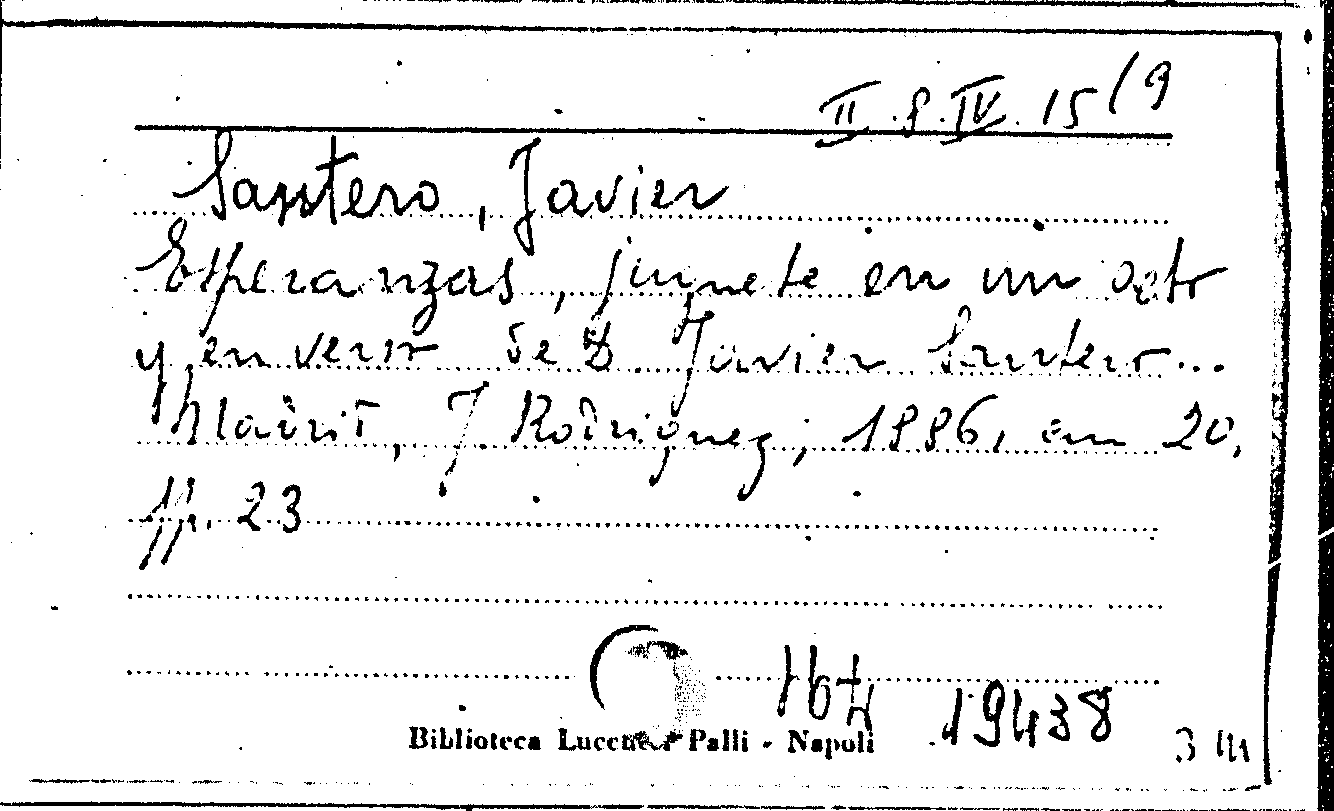 II. 8. IV. 15/9
Santero, Javier
Esperanzas, juguete en un acto
y en verso de D. Javier Santero...
Madrid, J Rodriguez, 1886, em 20,
pp. 23
19438
Biblioteca Lucchesi Palli - Napoli